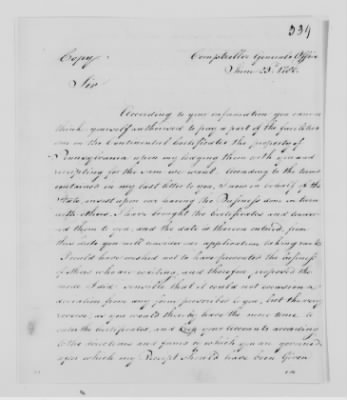 334
Copy
Comptroller General's Office
June 23d 1786.
Sir
According to your information you cannot
think yourself authorised to pay a part of the facilities
due on the Continental Certificates the property of
Pennsylvania upon my lodging them with you and
receipting for the sum we want. According to the terms
contained in my last letter to you, I now in behalf of the
State, insist upon our having the Business done in turn
with others. I have brought the Certificates and tendered
them to you, and the date is thereon entered, from
this date you will consider our application taking rank
I could have wished not to have prevented the business
of those who are waiting, and therefore, proposed the
mode I did sensible that it could not occasion a
deviation from any form prescribed to you, but the very
reverse, as you would thereby have the more time to
enter the Certificates, and keep your Accounts according
to the directions and forms by which you are governed
after which my Receipt should have been given